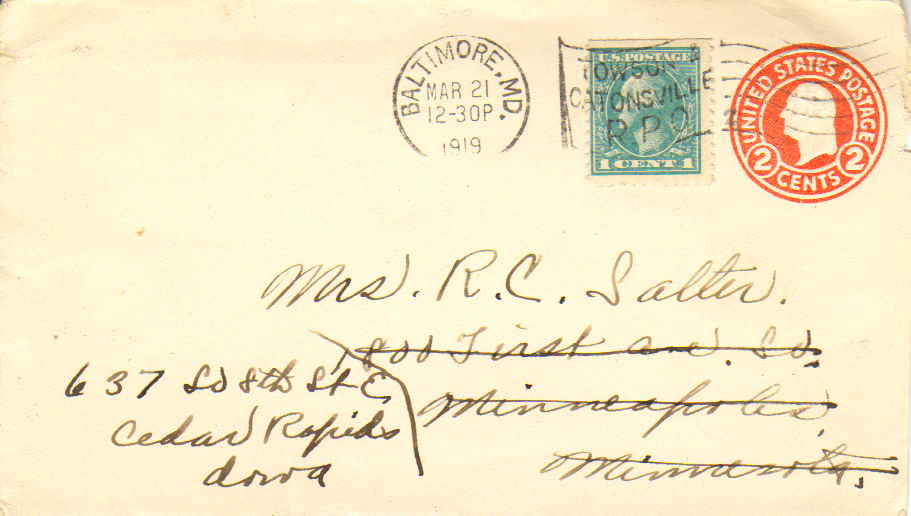 BALTIMORE, MD.
MAR 21
12-30P
1919
TOWSON &
CATONSVILLE
R P O
U.S. POSTAGE
1 CENT 1
UNITED STATES POSTAGE
2 CENTS 2
Mrs. R. C. Salter.
1800 First ave. So.
Minneapolis,
Minnesota.
637 So 8th St E
Cedar Rapids
Iowa